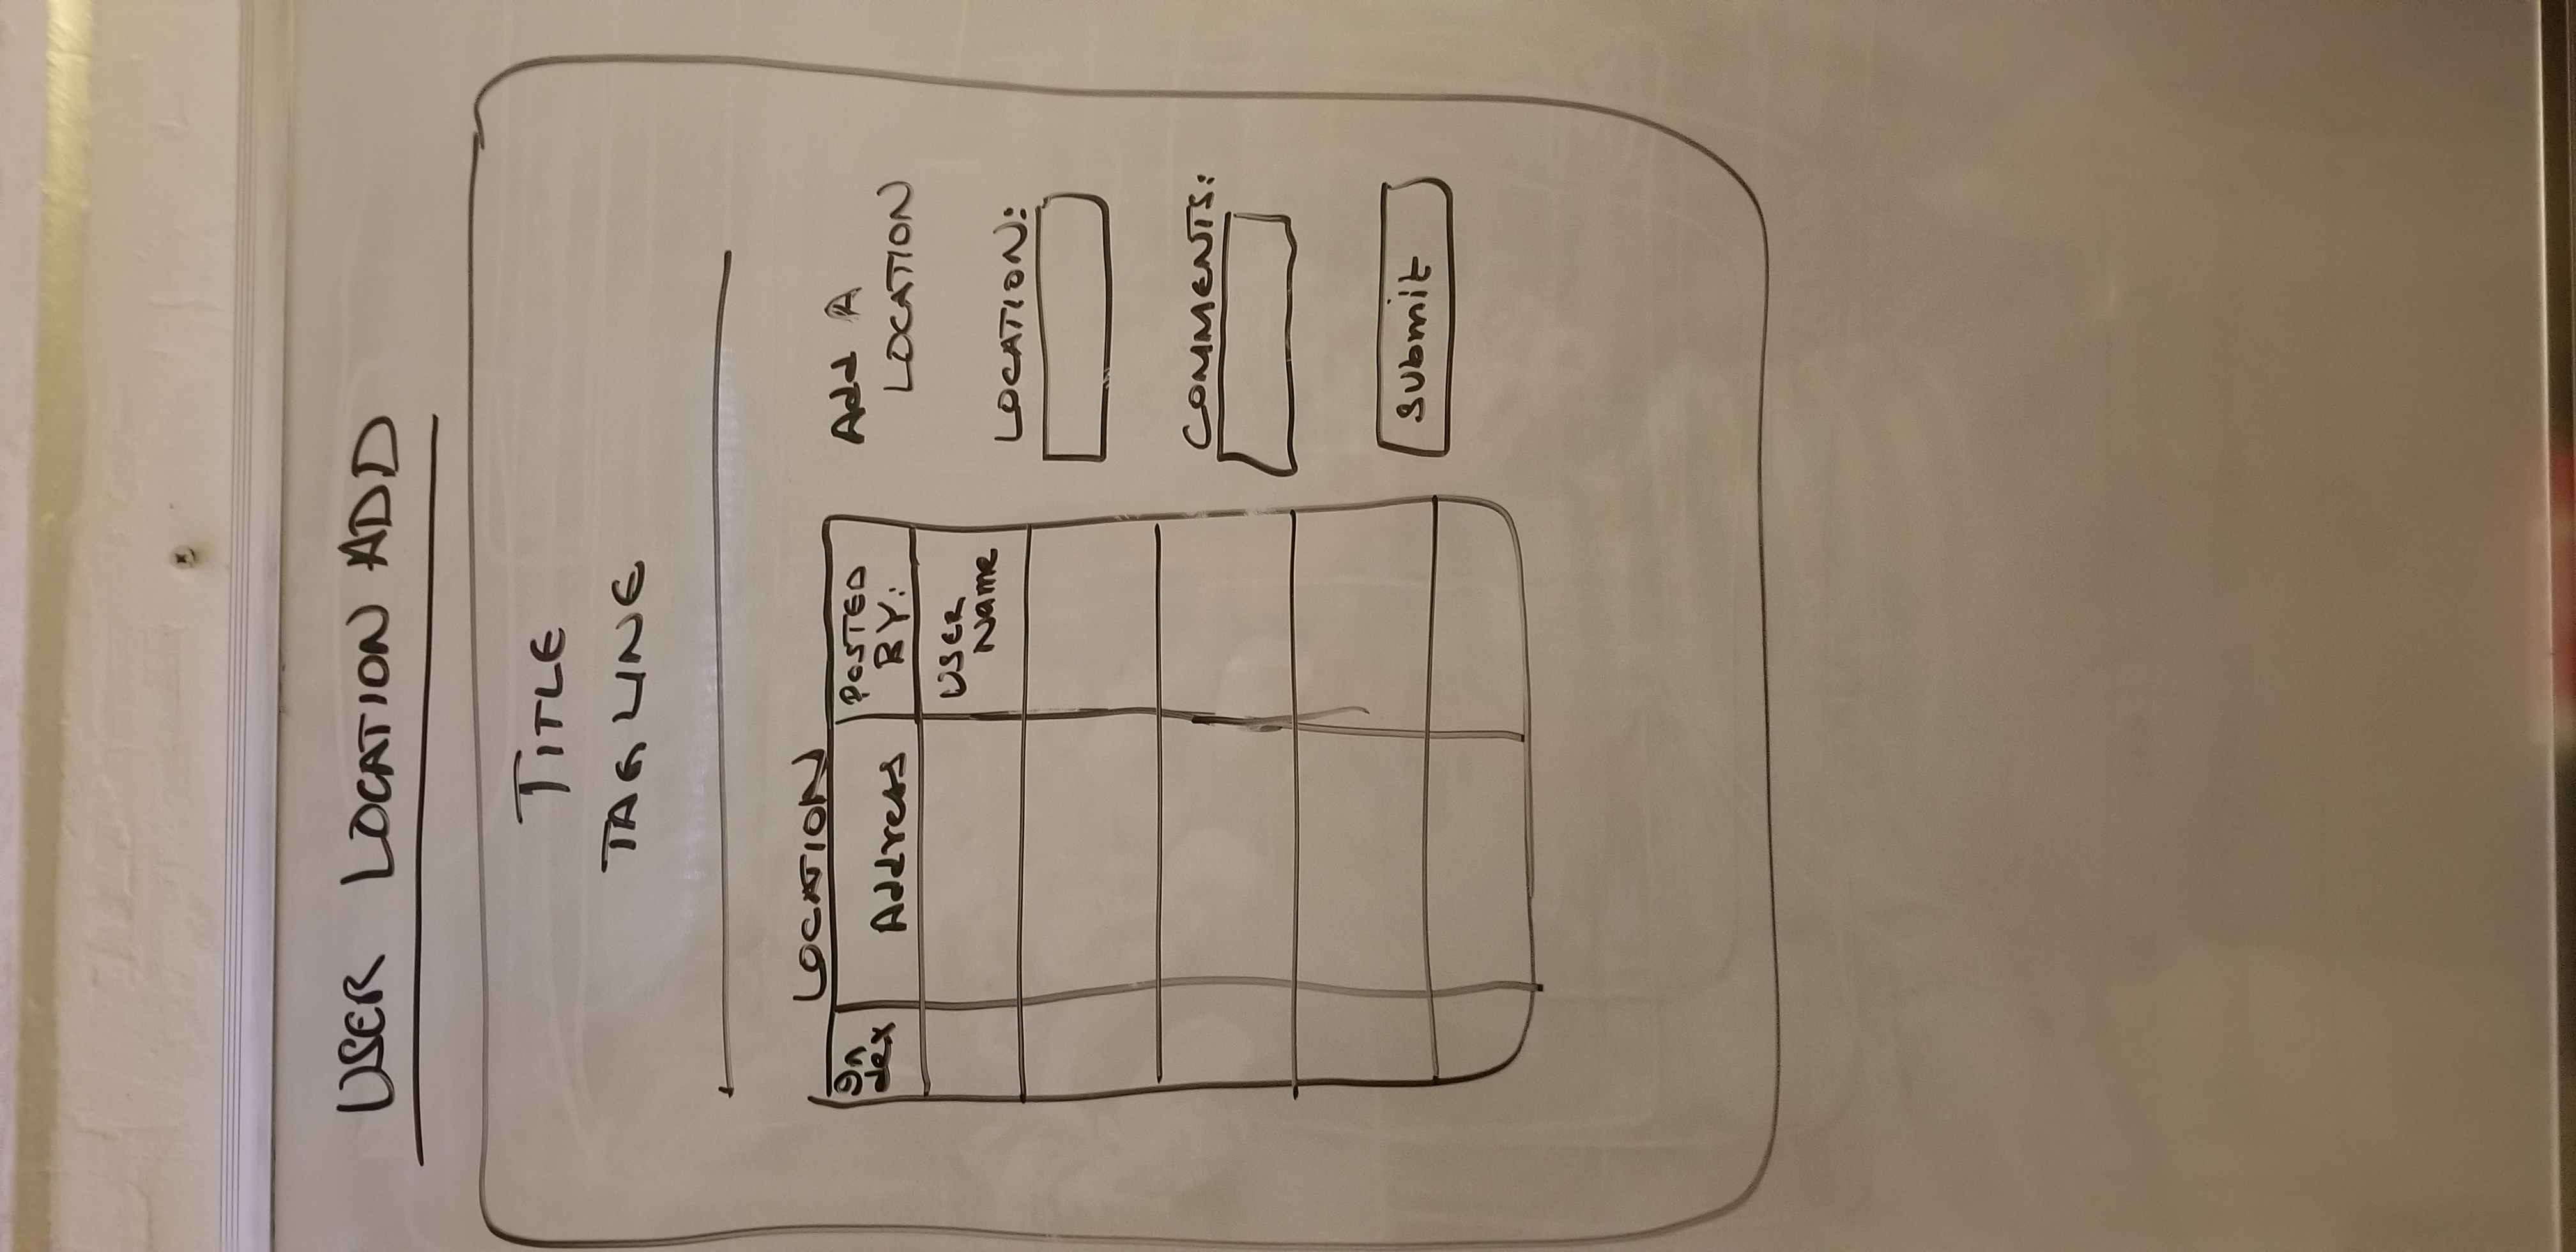 USER LOCATION ADD
TITLE
TAG LINE
LOCATION
In
dex
Address
POSTED
BY:
USER
Name
Add A
LOCATION
LOCATION:
COMMENTS:
Submit